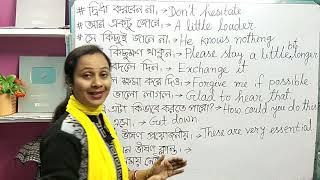 # দ্বিধা করবেন না, → Don't hesitate
# আর একটু জোরে, → A little louder
# সে কিছুই জানে না, → He knows nothing
কিছুক্ষণ থাকুন, → Please stay a little bit longer
বদলে দিন, → Exchange it
ক্ষমা করে দিও, → Forgive me if possible
ভালো লাগল, → Glad to hear that,
এটা কিভাবে করতে পারো? → How could you do this
এসো, → Get down
ভীষণ প্রয়োজনীয়, → These are very essential
ভীষণ ক্লান্ত, →
সময় নেই